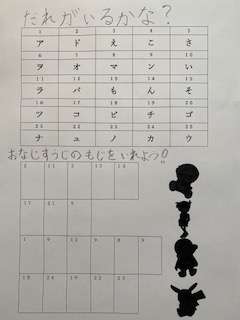 だれがいるかな?
1 2 3 4 5
ア ド え こ さ
6 7 8 9 10
ヲ オ マ ン い
11 12 13 14 15
ラ パ も ん そ
16 17 18 19 20
ツ コ ピ チ ゴ
21 22 23 24 25
ナ ュ ノ カ ウ
おなじすうじのもじをいれよう!!
2 11 3 13 14
17 21 9
1 9 12 9 8 9
18 24 19 22 25